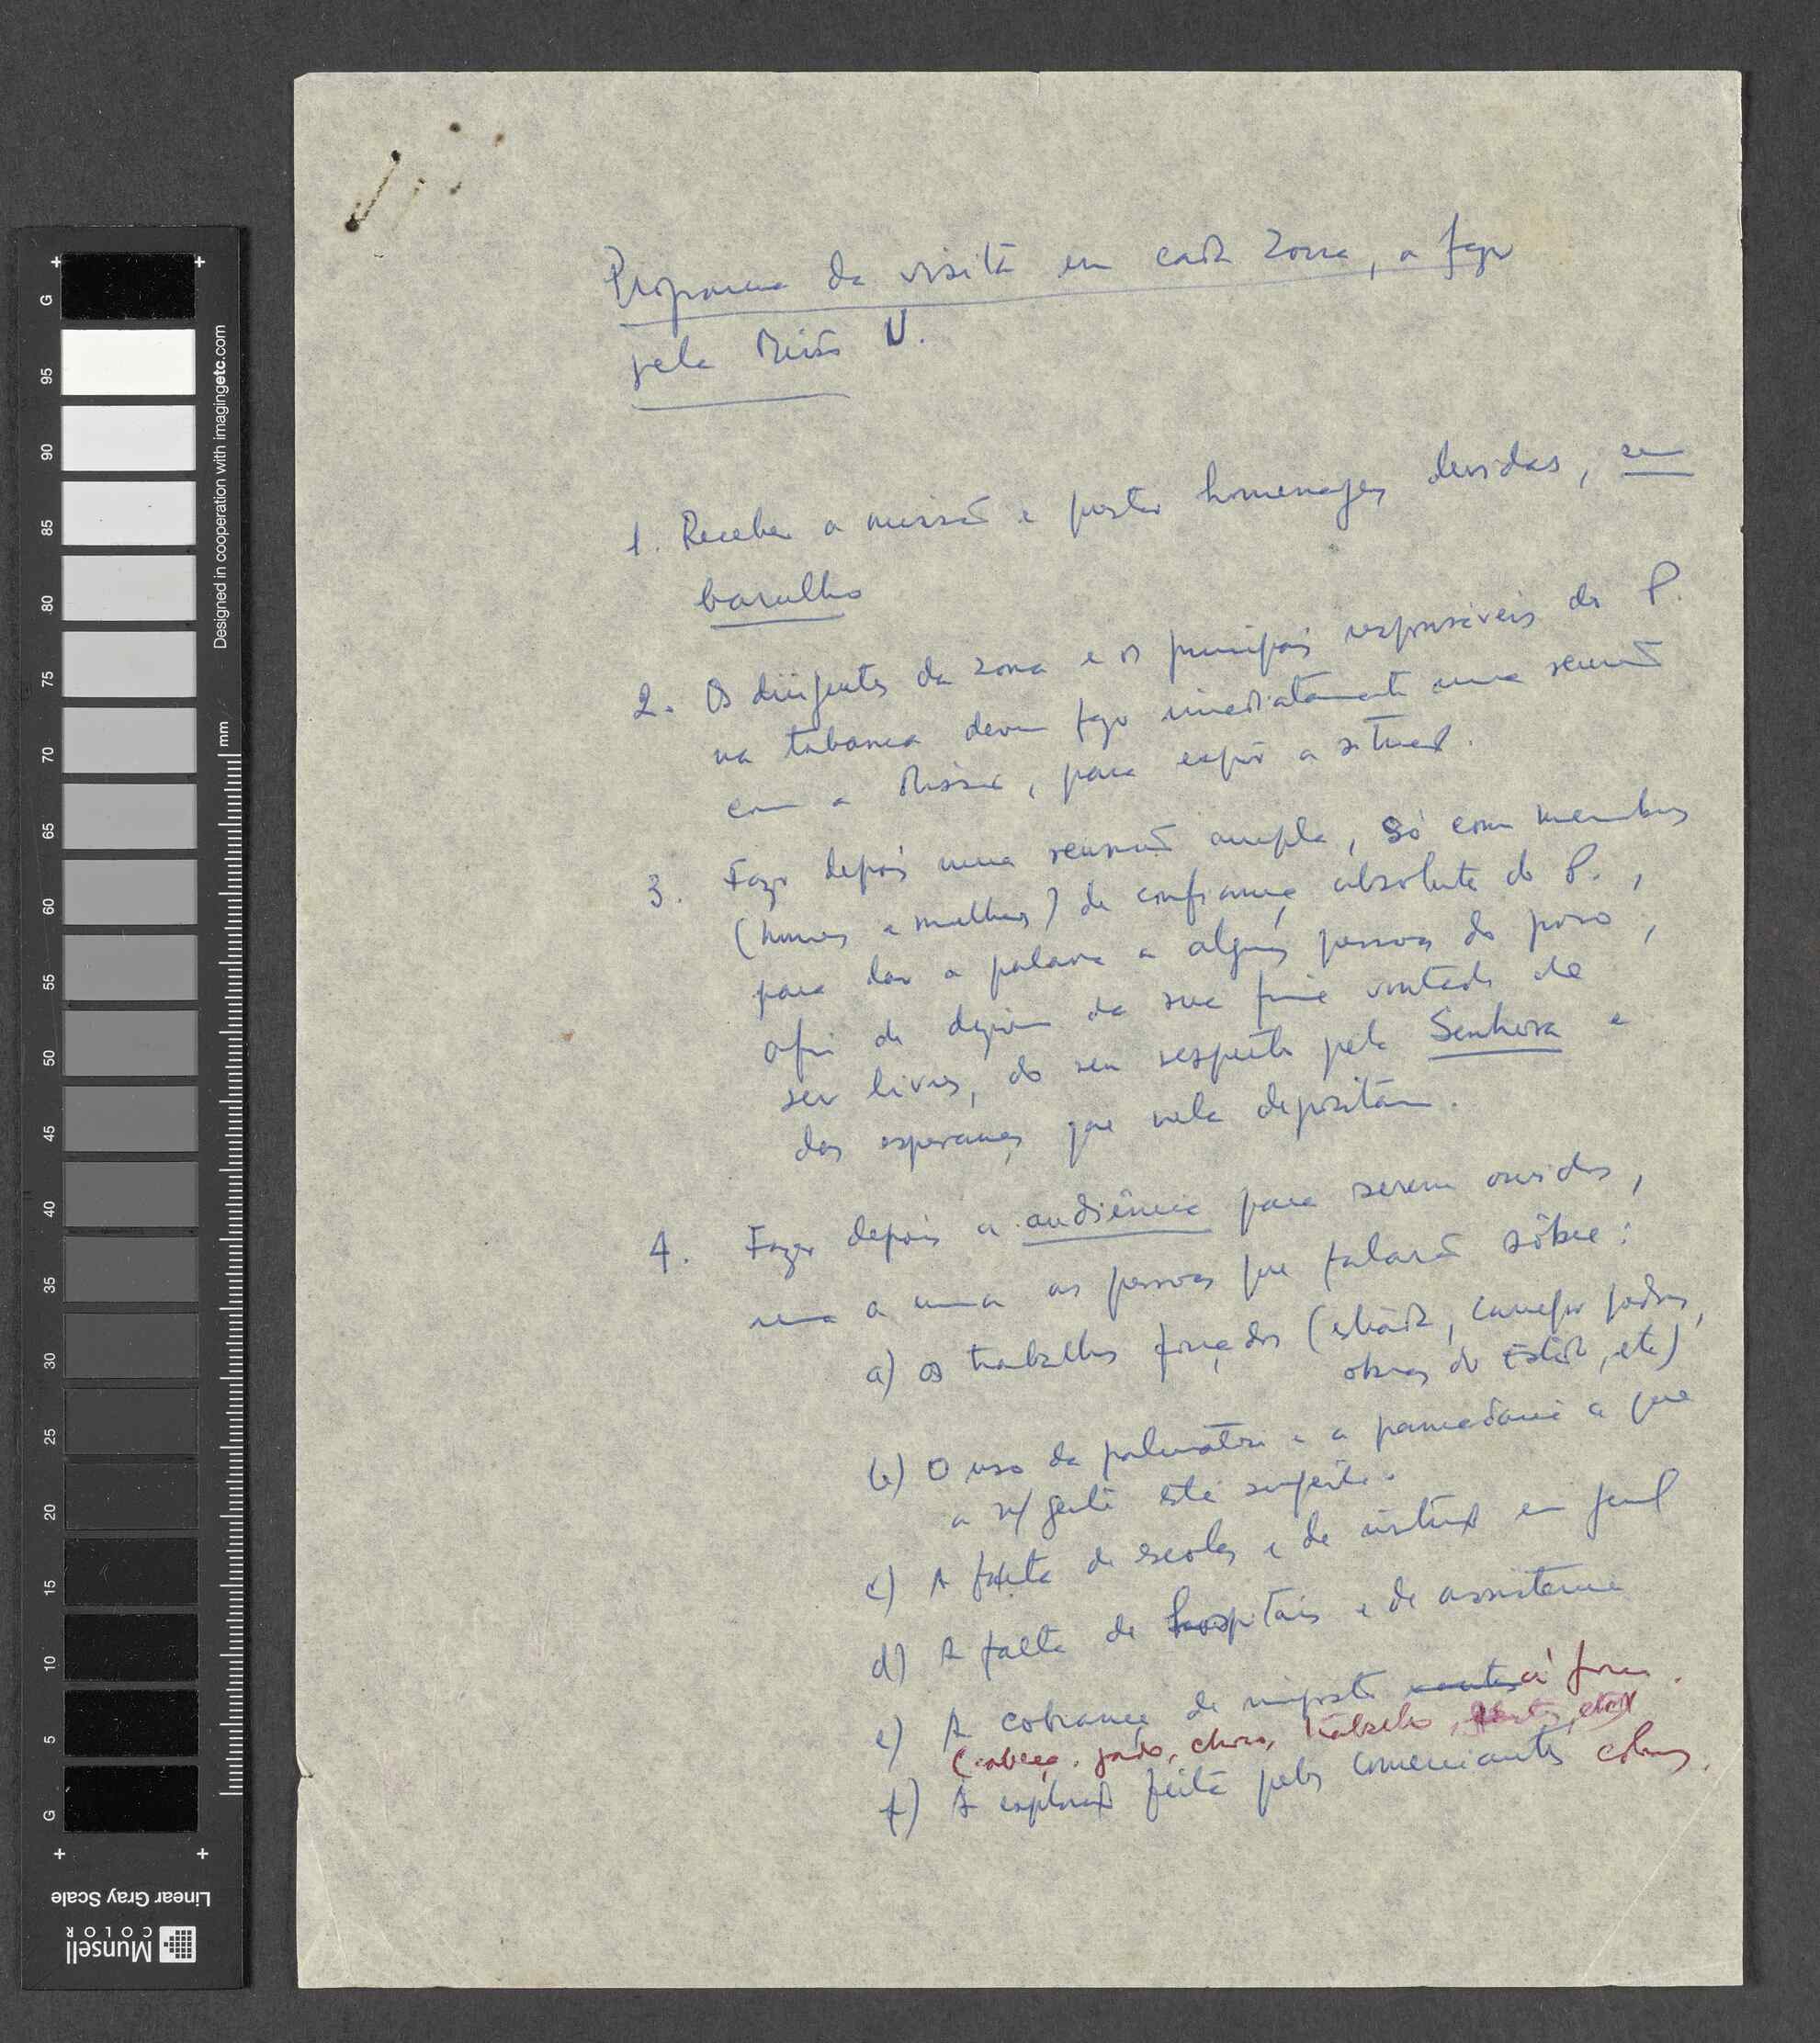 Programa da visita em cada zona, a fazer
pela Missão U.
1. Receber a missão e prestar homenagens devidas, sem
barulho
2. Os dirigentes da zona e os principais responsáveis do P.
na tabanca devem fazer imediatamente uma reunião
com a Missão, para expôr a situação.
3. Fazer depois uma reunião ampla, só com membros
(homens e mulheres) de confiança absoluta do P.,
para dar a palavra a algumas pessoas do povo,
afim de dizerem da sua firme vontade de
ser livres, do seu respeito pela Senhora e
das esperanças que nela depositam.
4. Fazer depois a audiência para serem ouvidas,
uma a uma as pessoas que falarão sôbre:
a) os trabalhos forçados (estrada, campo
obras do Estado, etc)
b) O uso da palmatória e a pancadaria a que
a n/ gente está sujeita.
c) A falta de escolas e de instrução em geral
d) A falta de hospitais e de assistencia
e) A cobrança de imposto à força.
(cabeça, gado, choro, trabalho, etc)
f) A exploração feita pelos comerciantes colons.
G
95
90
85
80
75
70
65
60
55
50
45
40
35
30
25
20
15
10
5
G
mm
Designed in cooperation with imagingetc.com
Linear Gray Scale
Munsell
COLOR